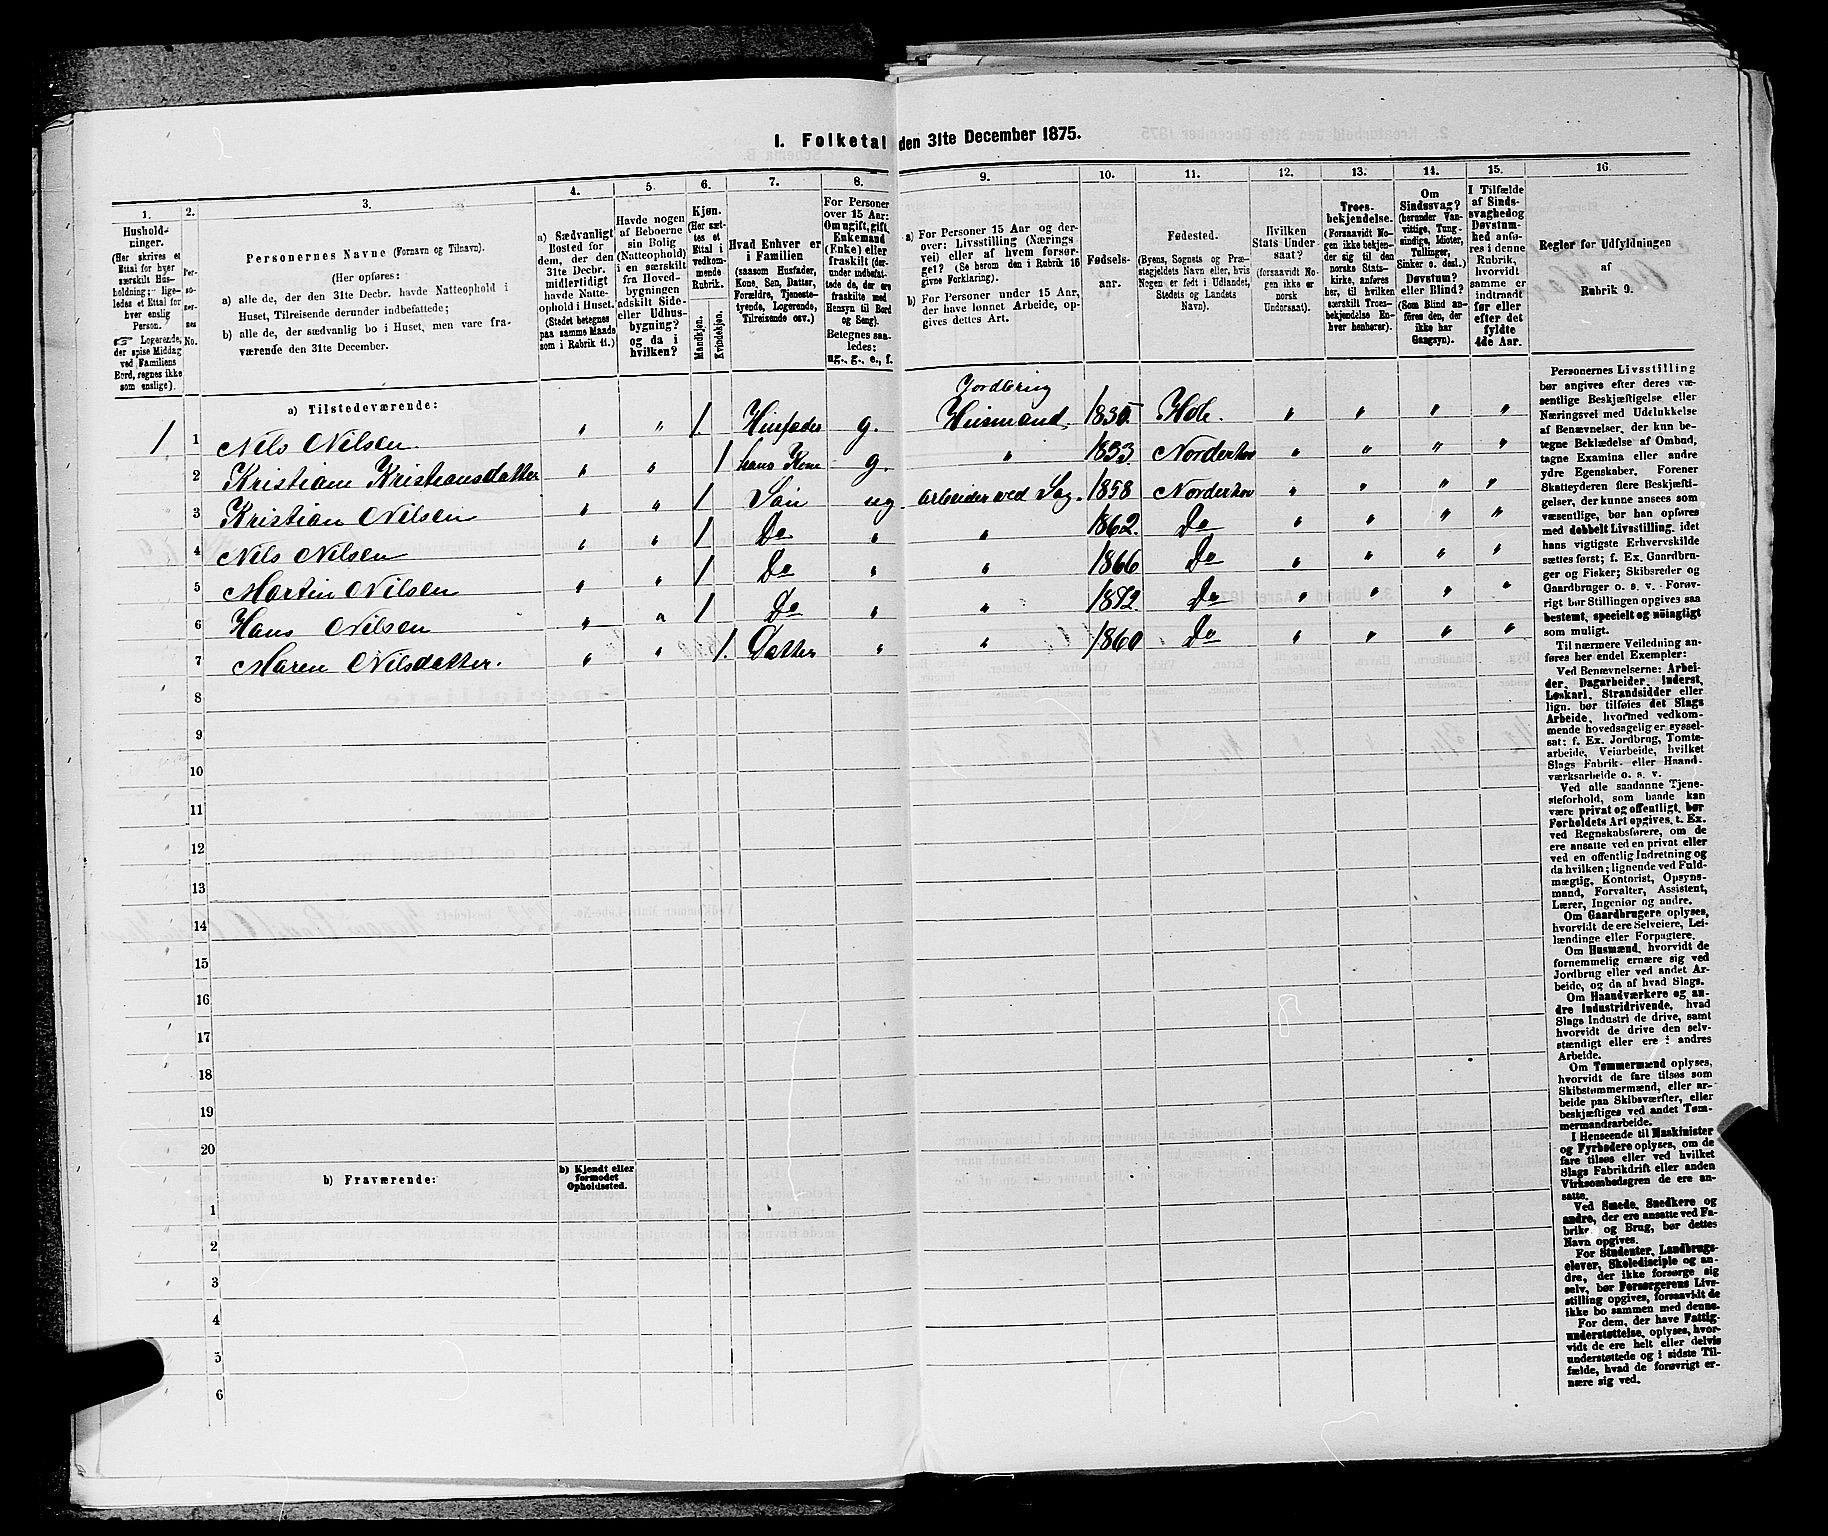 I. Folketal den 31te December 1875.
1. 2. 3. 4. 5. 6. 7. 8. 9. 10. 11. 12. 13. 14. 15. 16.
Hushold-
ninger.
(Her skrives et
Ettal for hver
særskilt Hus-
holdning; lige-
ledes et Ettal for
hver enslig
Person.
☞ Logerende,
der spise Middag
ved Familiens
Bord, regnes ikke
som enslige).
Per-
so-
ner-
nes
No.
Personernes Navne (Fornavn og Tilnavn).
(Her opføres:
a) alle de, der den 31te Decbr. havde Natteophold i
Huset, Tilreisende derunder indbefattede;
b) alle de, der sædvanlig bo i Huset, men vare fra-
værende den 31te December.
a) Sædvanligt
Bosted for
dem, der den
31te Decbr.
midlertidigt
havde Natte-
ophold i Huset.
(Stedet betegnes
paa samme Maade
som i Rubrik 11.)
Havde nogen
af Beboerne
sin Bolig
(Natteophold)
i en særskilt
fra Hoved-
bygningen
adskilt Side-
eller Udhus-
bygning?
og da i
hvilken?
Kjøn.
(Her sæt-
tes et
Ettal i
vedkom-
mende
Rubrik.
Mandkjøn.
Kvindekjøn.
Hvad Enhver er
i Familien
(saasom Husfader,
Kone, Søn, Datter,
Forældre, Tjeneste-
tyende, Logerende,
Tilreisende osv.)
For Personer
over 15 Aar:
Om ugift, gift,
Enkemand
(Enke) eller
fraskilt (der-
under indbefat-
tede de, der ere
fraskilte med
Hensyn til Bord
og Seng).
Betegnes saa-
ledes:
ug., g., e., f.
a) For Personer 15 Aar og der-
over: Livsstilling (Nærings
vei) eller af hvem forsør-
get? (Se herom den i Rubrik 16
givne Forklaring).
b) For Personer under 15 Aar,
der have lønnet Arbeide, op-
gives dettes Art.
Fødsels-
aar.
Fødested.
(Byens, Sognets og Præ-
stegjeldets Navn eller, hvis
Nogen er født i Udlandet,
Stedets og Landets
Navn).
Hvilken
Stats Under-
saat?
(forsaavidt No-
gen ikke er
norsk
Undersaat).
Troes-
bekjendelse.
(Forsaavidt No-
gen ikke bekjen-
der sig til den
norske Stats-
kirke, anføres
her, til hvilken
særskilt Troes-
bekjendelse En-
hver henhører).
Om
Sindssvag?
(herunder Van-
vittige, Tung-
sindige, Idioter,
Tullinger,
Sinker o. desl.)
Døvstum?
eller Blind?
(Som Blind an-
føres den, der
ikke har
Gangsyn).
I Tilfælde
af Sinds-
svaghed og
Døvstum-
hed anfø-
res i denne
Rubrik,
hvorvidt
samme er
indtraadt
før eller
efter det
fyldte
4de Aar.
Regler for Udfyldningen
af
Rubrik 9.
a) Tilstedeværende:
Jordbrug
1 1 Nils Nilsen " " 1. Husfader g. Husmand. 1830. Hole. " " " "
2 Kristiane Kristiansdatter " " 1 hans Kone g. " 1833. Norderhov " " " "
3 Kristian Nilsen " " 1 Søn ug. arbeider ved Sag. 1858 Norderhov " " " "
4 Nils Nilsen " " 1 Do " " 1862. Do " " " "
5 Martin Nilsen " " 1 Do " " 1866 Do " " " "
6 Hans Nilsen " " 1 Do " " 1872. Do " " " "
7 Maren Nilsdatter. " " 1. Datter " " 1860 Do " " " "
8
9
10
11
12
13
14
15
16
17
18
19
20
b) Fraværende:
b) Kjendt eller
formodet
Opholdssted.
1
2
3
4
5
6
Personernes Livsstilling
bør angives efter deres væ-
sentlige Beskjæftigelse eller
Næringsvei med Udelukkelse
af Benævnelser, der kun be-
tegne Beklædelse af Ombud,
tagne Examina eller andre
ydre Egenskaber. Forener
Skatteyderen flere Beskjæfti-
gelser, der kunne ansees som
væsentlige, bør han opføres
med dobbelt Livsstilling, idet
hans vigtigste Erhvervskilde
sættes først; f. Ex. Gaardbru-
ger og Fisker; Skibsreder og
Gaardbruger o. s. v. Forøv-
rigt bør Stillingen opgives saa
bestemt, specielt og nöiagtigt
som muligt.
Til nærmere Veiledning an-
føres her endel Exempler:
Ved Benævnelserne: Arbei-
der, Dagarbeider, Inderst,
Løskarl, Strandsidder eller
lign. bør tilføies det Slags
Arbeide, hvormed vedkom-
mende hovedsagelig er syssel-
sat; f. Ex. Jordbrug, Tomte-
arbeide, Veiarbeide, hvilket
Slags Fabrik- eller Haand-
værksarbeide o. s. v.
Ved alle saadanne Tjene-
steforhold, som baade kan
være privat og offentligt, bør
Forholdets Art opgives, t. Ex.
ved Regnskabsførere, om de
ere ansatte ved en privat eller
ved en offentlig Indretning og
da hvilken; lignende ved Fuld-
mægtig, Kontorist, Opsyns-
mand, Forvalter, Assistent,
Lærer, Ingeniør og andre.
Om Gaardbrugere oplyses,
hvorvidt de ere Selveiere, Lei-
lændinge eller Forpagtere.
Om Husmænd, hvorvidt de
fornemmelig ernære sig ved
Jordbrug eller ved andet Ar-
beide, og da af hvad Slags.
Om Haandværkere og an-
dre Industridrivende, hvad
Slags Industri de drive, samt
hvorvidt de drive den selv-
stændigt eller ere i andres
Arbeide.
Om Tømmermænd oplyses,
hvorvidt de fare tilsøs som
Skibstømmermænd, eller ar-
beide paa Skibsværfter, eller
beskjæftiges ved andet Tøm-
mermandsarbeide.
I Henseende til Maskinister
og Fyrbødere oplyses, om de
fare tilsøs eller ved hvilket
Slags Fabrikdrift eller anden
Virksombedsgren de ere an-
satte.
Ved Smede, Snedkere og
andre, der ere ansatte ved Fa-
briker og Brug, bør dettes
Navn opgives.
For Studenter, Landbrugs-
elever, Skoledisciple og an-
dre, der ikke forsørge sig
selv, bør Forsørgerens Livs-
stilling opgives, forsaavidt de
ikke bo sammen med denne.
For dem, der have Fattig-
understøttelse, oplyses, hvor-
vidt de ere helt eller delvis
understøttede og i sidste Til-
fælde, hvad de forøvrigt er-
nære sig ved.